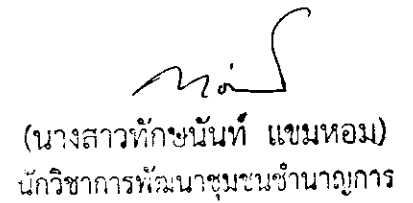 (นางสาวทักษนันท์ แขมหอม)
นักวิชาการพัฒนาชุมชนชำนาญการ